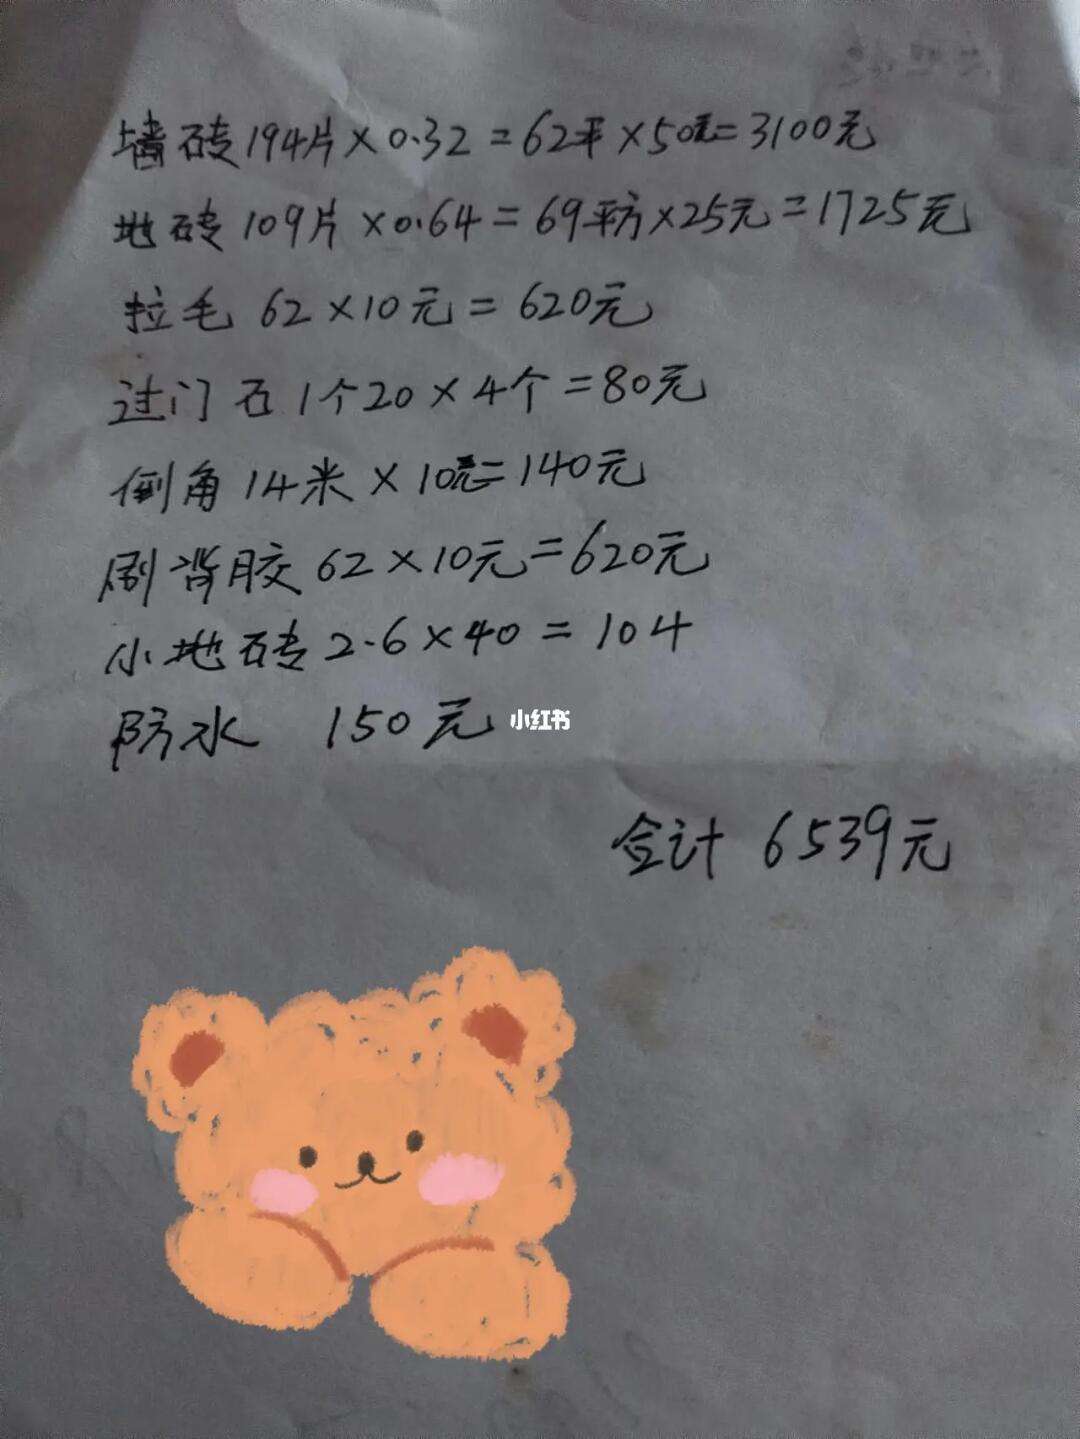 墙砖194片×0.32=62平×50元=3100元
地砖109片×0.64=69平方×25元=1725元
拉毛 62×10元=620元
过门石1个20×4个=80元
倒角14米×10元=140元
刷背胶62×10元=620元
小地砖2.6×40=104
防水 150元
小红书
合计 6539元